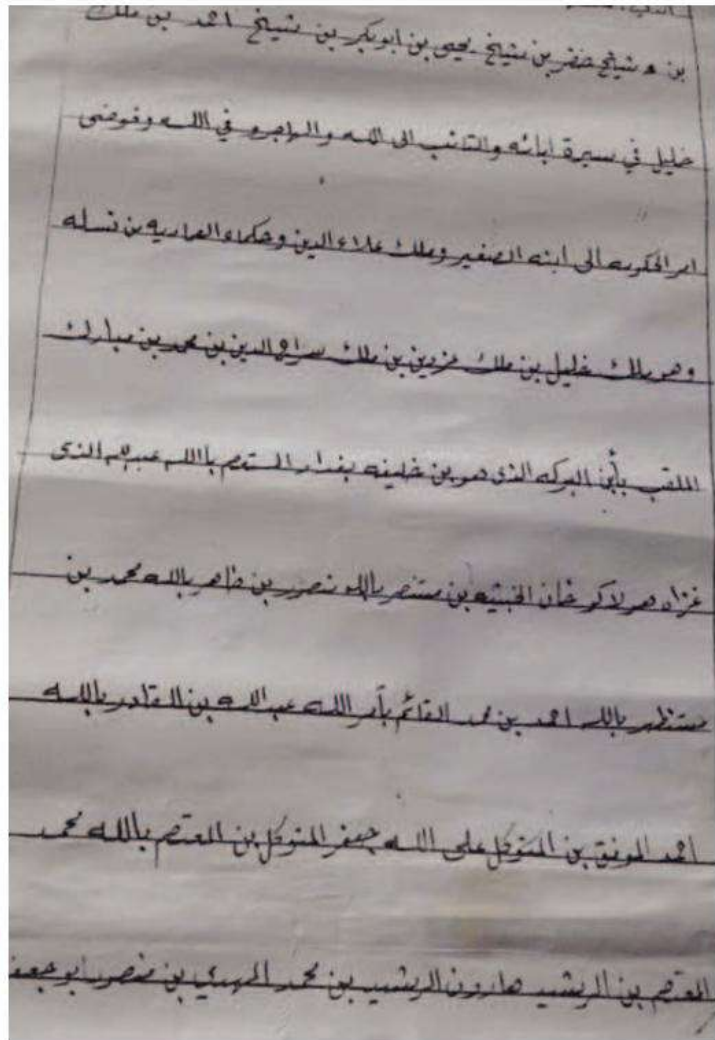 بن ه شيخ خضر بن شيخ يحيى بن ابوبكر بن شيخ احمد بن ملك
خليل في سيرة ابائه والتائب الى الله والراجو في الله وفوضى
امر الحكومه الى ابنه الصغير وملك علاء الدين وحكماء العماريه بن نسله
وهو ملك خليل بن ملك عزدين بن ملك سراج الدين بن محمد بن مبارك
الملقب بأبي البركه الذى هو بن خليفه بغداد المستعصم باالله عبدالله الذى
غزاه هولاكو خان الخبيثه بن مستنصر باالله منصور بن ظاهر بالله محمد بن
مستظهر بالله احمد بن محمد القائم بأمر الله عبد الله بن القادر بالله
احمد الموفق بن المتوكل على الله جعفر المتوكل بن المعتصم بالله محمد
المعتصم بن الريشيد هارون الريشيد بن محمد المهدي بن منصور ابو جعفر